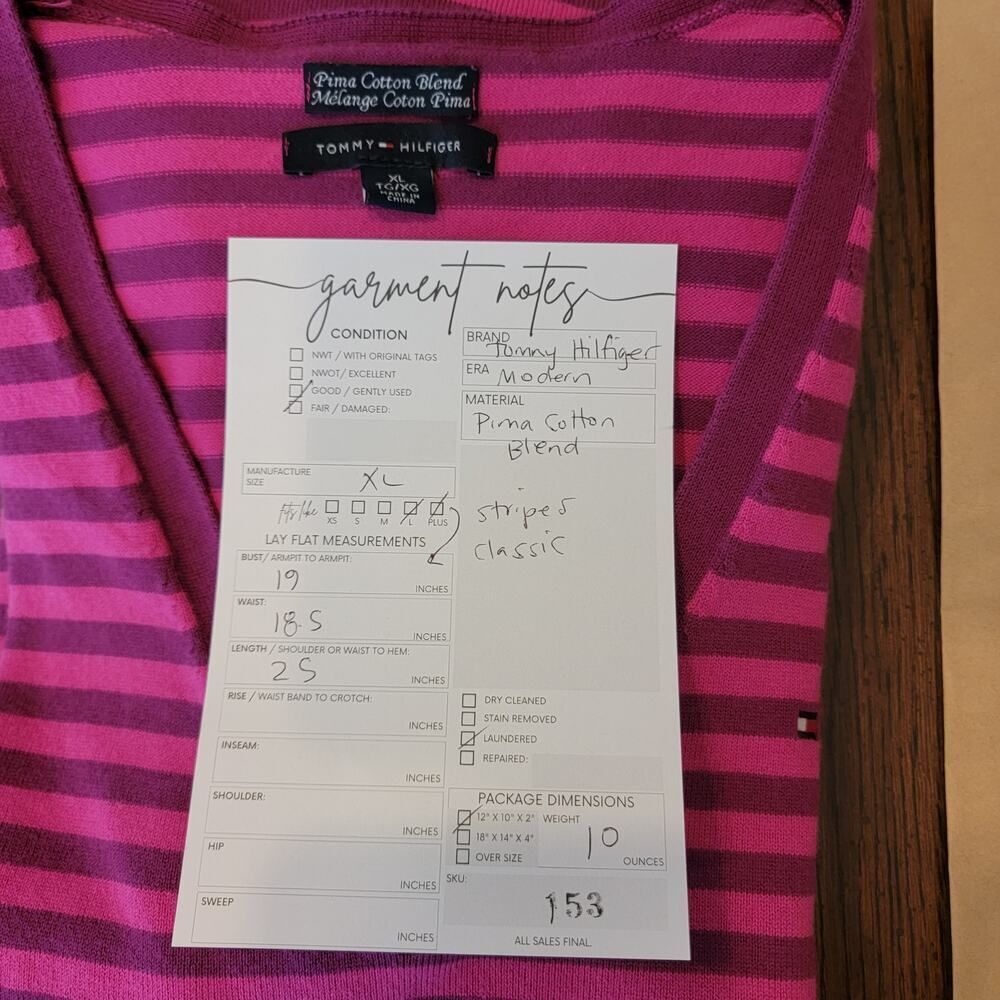 Pima Cotton Blend
Mélange Coton Pima
TOMMY HILFIGER
XL
TG/XG
MADE IN
CHINA
garment notes
CONDITION
NWT / WITH ORIGINAL TAGS
NWOT/ EXCELLENT
GOOD / GENTLY USED
FAIR / DAMAGED:
BRAND
Tommy Hilfiger
ERA Modern
MATERIAL
Pima Cotton
Blend
striped
classic
MANUFACTURE
SIZE
XL
fits like
XS S M L PLUS
LAY FLAT MEASUREMENTS
BUST/ ARMPIT TO ARMPIT:
19
INCHES
WAIST:
18.5
INCHES
LENGTH / SHOULDER OR WAIST TO HEM:
25
INCHES
RISE / WAIST BAND TO CROTCH:
INCHES
INSEAM:
INCHES
SHOULDER:
INCHES
HIP
INCHES
SWEEP
INCHES
DRY CLEANED
STAIN REMOVED
LAUNDERED
REPAIRED:
PACKAGE DIMENSIONS
12" X 10" X 2"
18" X 14" X 4"
OVER SIZE
WEIGHT
10
OUNCES
SKU:
153
ALL SALES FINAL.